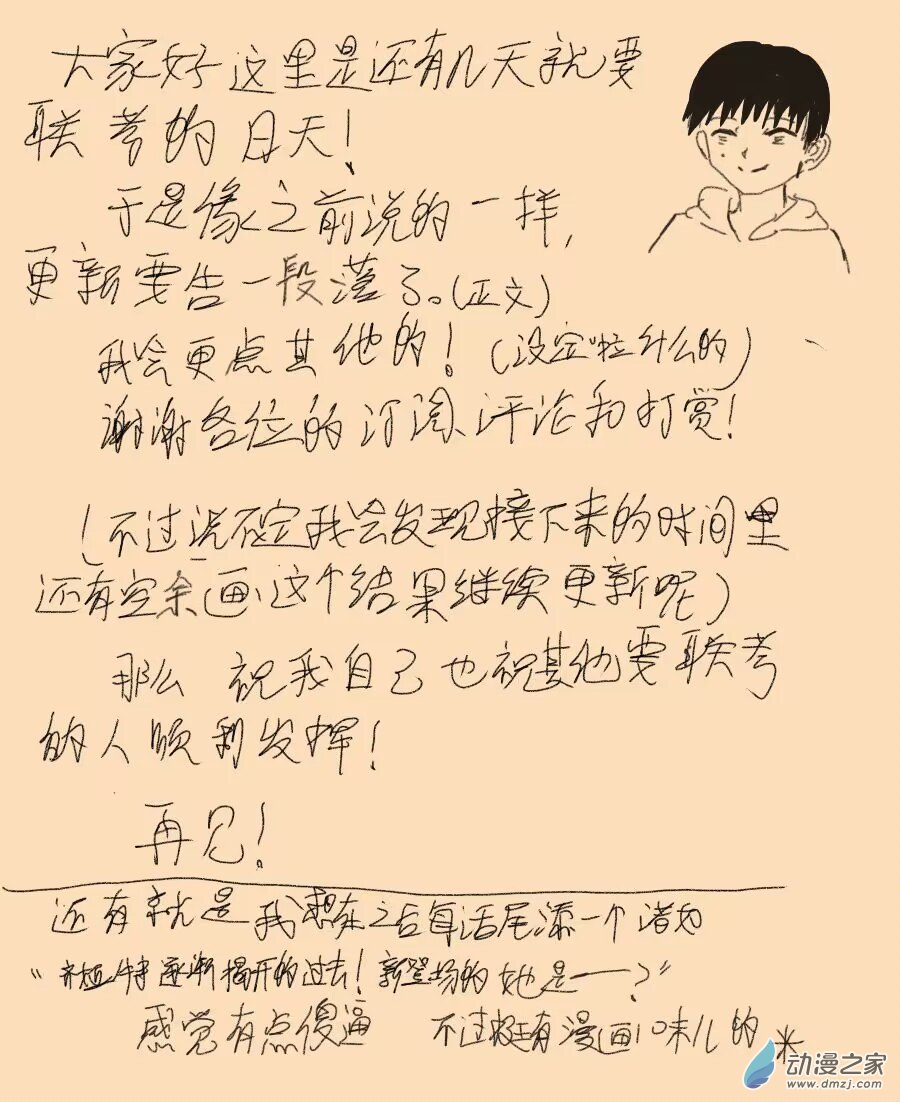 大家好这里是还有几天就要
联考的日天!
于是像之前说的一样,
更新要告一段落了。(正文)
我会更点其他的!(设定啦什么的)
谢谢各位的订阅、评论和打赏!
(不过说不定我会发现接下来的时间里
还有空余画、这个结果继续更新呢)
那么 祝我自己也祝其他要联考
的人顺利发挥!
再见!
还有就是我想在之后每话尾添一个诸如
“逐渐揭开的过去!新登场的她是——?”
感觉有点傻逼 不过挺有漫画味儿的
动漫之家
www.dmzj.com